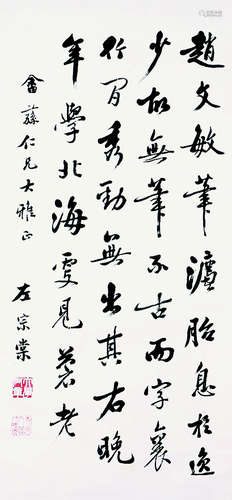 趙文敏筆瀍胎息於逸
少故無筆不古而字裏
行間秀勁無出其右晚
年學北海更見蒼老
畬蓀仁兄大雅正
左宗棠